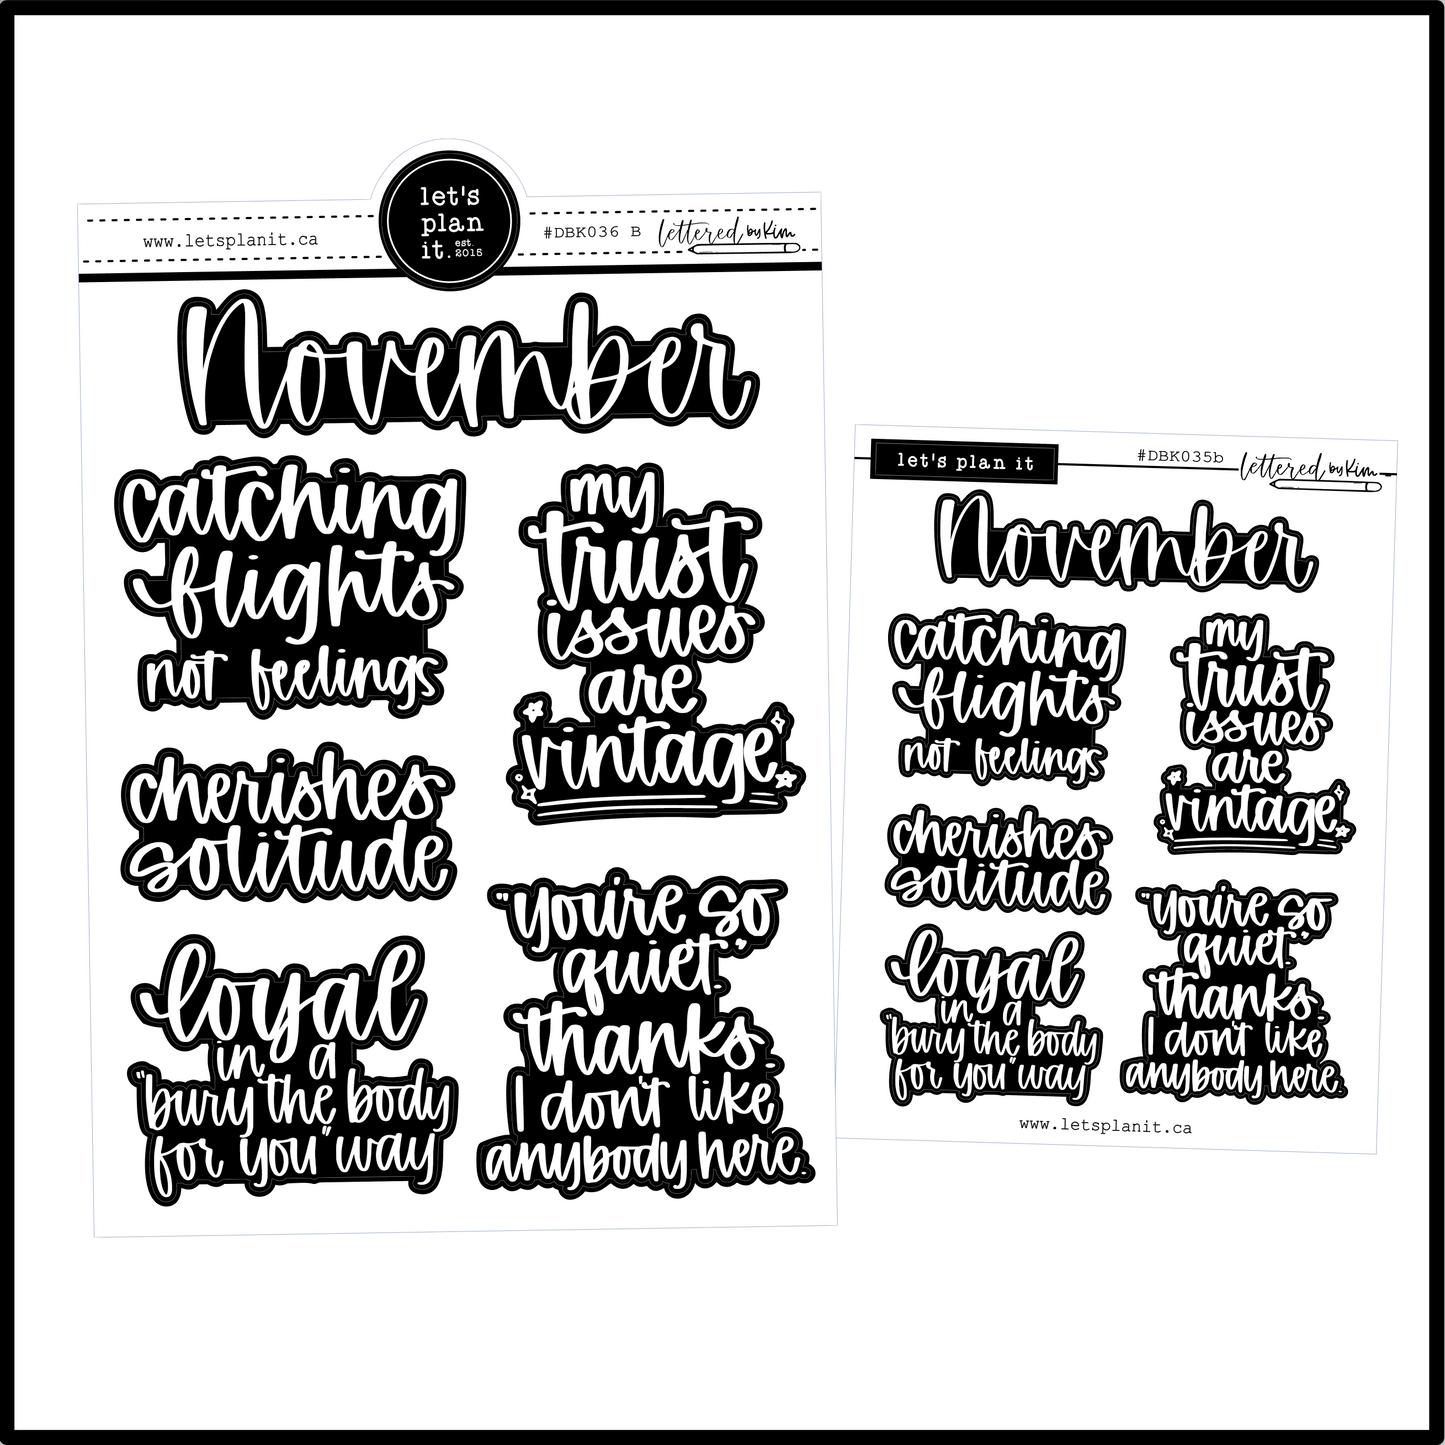 let's
plan
it. est.
2015
www.letsplanit.ca
#DBK036 B
lettered by Kim
November
catching
flights
not feelings
my
trust
issues
are
vintage
cherishes
solitude
"you're so
quiet."
thanks.
I don't like
anybody here.
loyal
in a
"bury the body
for you" way
let's plan it
#DBK035b
lettered by Kim
November
catching
flights
not feelings
my
trust
issues
are
vintage
cherishes
solitude
"you're so
quiet."
thanks.
I don't like
anybody here.
loyal
in a
"bury the body
for you" way
www.letsplanit.ca